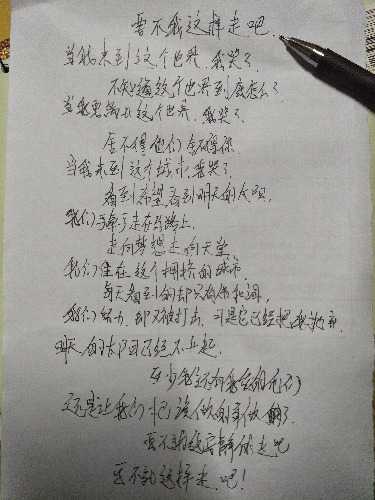 要不就这样走吧
当我来到这个世界,我哭了
不知道这个世界到底怎么了
当我要离开这个世界,我哭了
舍不得他们舍不得你
当我来到这个城市,我哭了
看到希望看到明天的
我们手牵手走在马路上
走向梦想走向天堂
我们住在这个拥挤的城市
每天看到的却只有
我们努力,却又被打击,可是它已经把我
明天的太阳已经不
至少我还有我爱的
还是让我们把该做的事做
要不就这安静的走吧
要不就这样走吧!